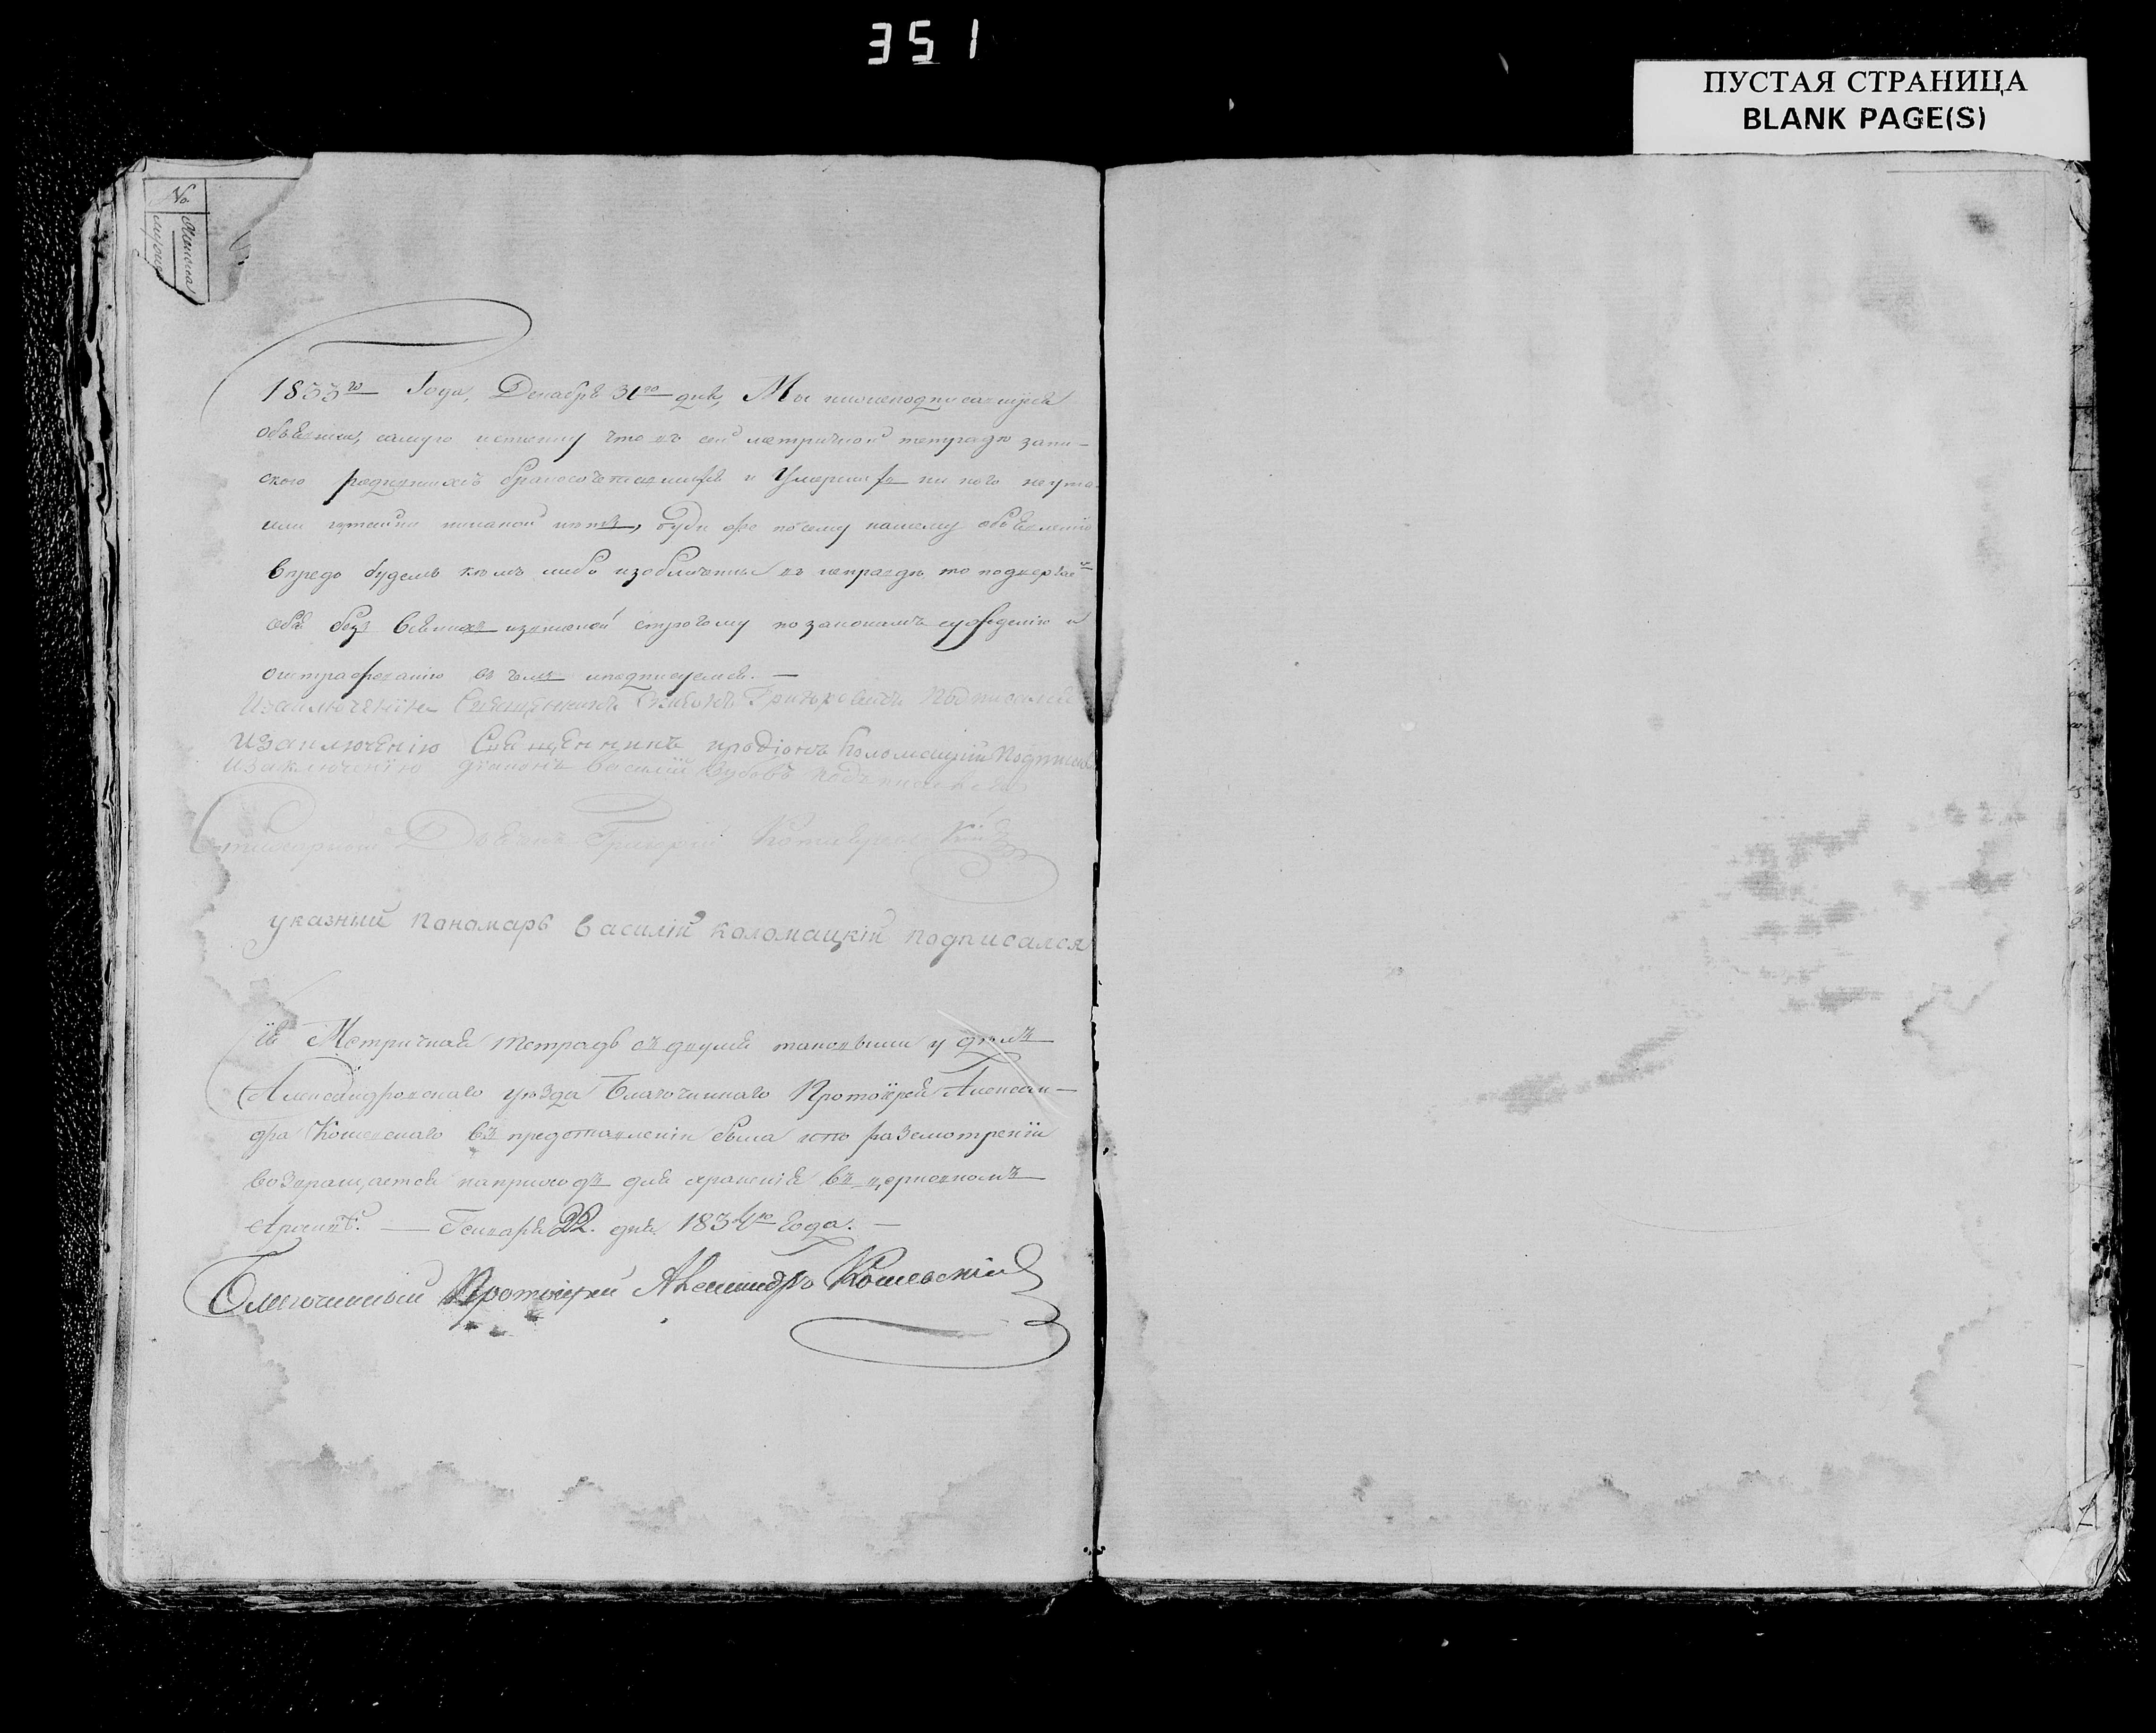 351
ПУСТАЯ СТРАНИЦА
BLANK PAGE(S)
№
Женска
мужеска
1833го Года, Декабря 31го дня, Мы нижеподписавшуеся
объявили, самую истинну что въ сей метричной тетради запи-
скою родившихся бракосочетавшихся и Умершихъ ни кого неута-
или никакой буди же посему нашему объявлению
впредь будемъ кемъ либо изобличенны въ неправде то подвергаем
себя без всякихъ извинений строгому по законамъ суждению и
оштрафованию въ чемъ иподписуемся. —
Изаключению Священникъ Григоровичъ Подписался
изаключению Священникъ иродионъ Коломацкий Подписался
изаключению диаконъ Василий Зубовъ подписался
Григорий
указний пономарь василий коломацкий подписался
Метричная тетрадь съ двумя таковыми у делъ
Александровскаго уезда Благочиннаго Протоиерея Алексан-
дра Кошевскаго въ представлении была и по разсмотрении
возвращается наприходъ для хранения въ церковномъ
Архиве. — Генваря 22. дня 1834го Года. —
Благочинный Протоиерей Александръ Кошевский